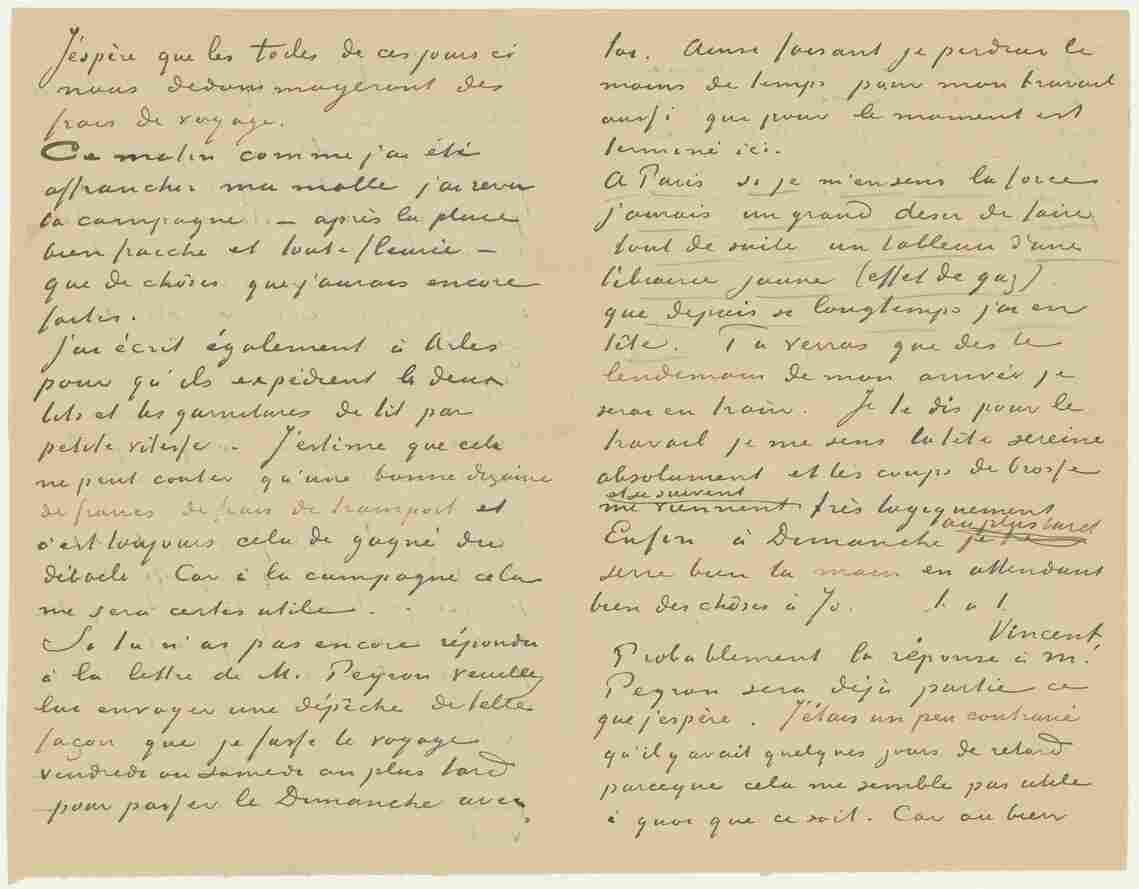 J'espère que les toiles de ces jours ci
nous dedommageront des
frais de voyage.
Ce matin comme j'ai été
affranchir ma malle j'ai revu
la campagne – après la pluie
bien fraiche et toute fleurie –
que de chôses que j'aurais encore
faites.
J'ai écrit également à Arles
pour qu'ils expédient les deux
lits et les garnitures de lit par
petite vitesse. J'estime que cela
ne peut couter qu'une bonne dizaine
de francs de frais de transport et
c'est toujours cela de gagné du
débacle. Car à la campagne cela
me sera certes utile.
Si tu n'as pas encore répondu
à la lettre de M. Peyron veuillez
lui envoyer une dépêche de telle
façon que je fasse le voyage
vendredi ou samedi au plus tard
pour passer le Dimanche avec
toi. Ainsi faisant je perdrai le
moins de temps pour mon travail
aussi que pour le moment est
terminé ici.
A Paris si je m'en sens la force
j'aurais un grand desir de faire
tout de suite un tableau d'une
librairie jaune (effet de gaz)
que depuis si longtemps j'ai en
tête. Tu verras que dès le
lendemain de mon arrivée je
serai en train. Je te dis pour le
travail je me sens la tête sereine
absolument et les coups de brosse
et se suivent
me viennent très logiquement
au plus tard
Enfin à Dimanche je te
serre bien la main en attendant
bien des chôses à Jo. t. à t.
Vincent
Probablement la réponse à M.
Peyron sera déjà partie ce
que j'espère. J'étais un peu contrarié
qu'il y avait quelques jours de retard
parceque cela me semble pas utile
à quoi que ce soit. Car ou bien